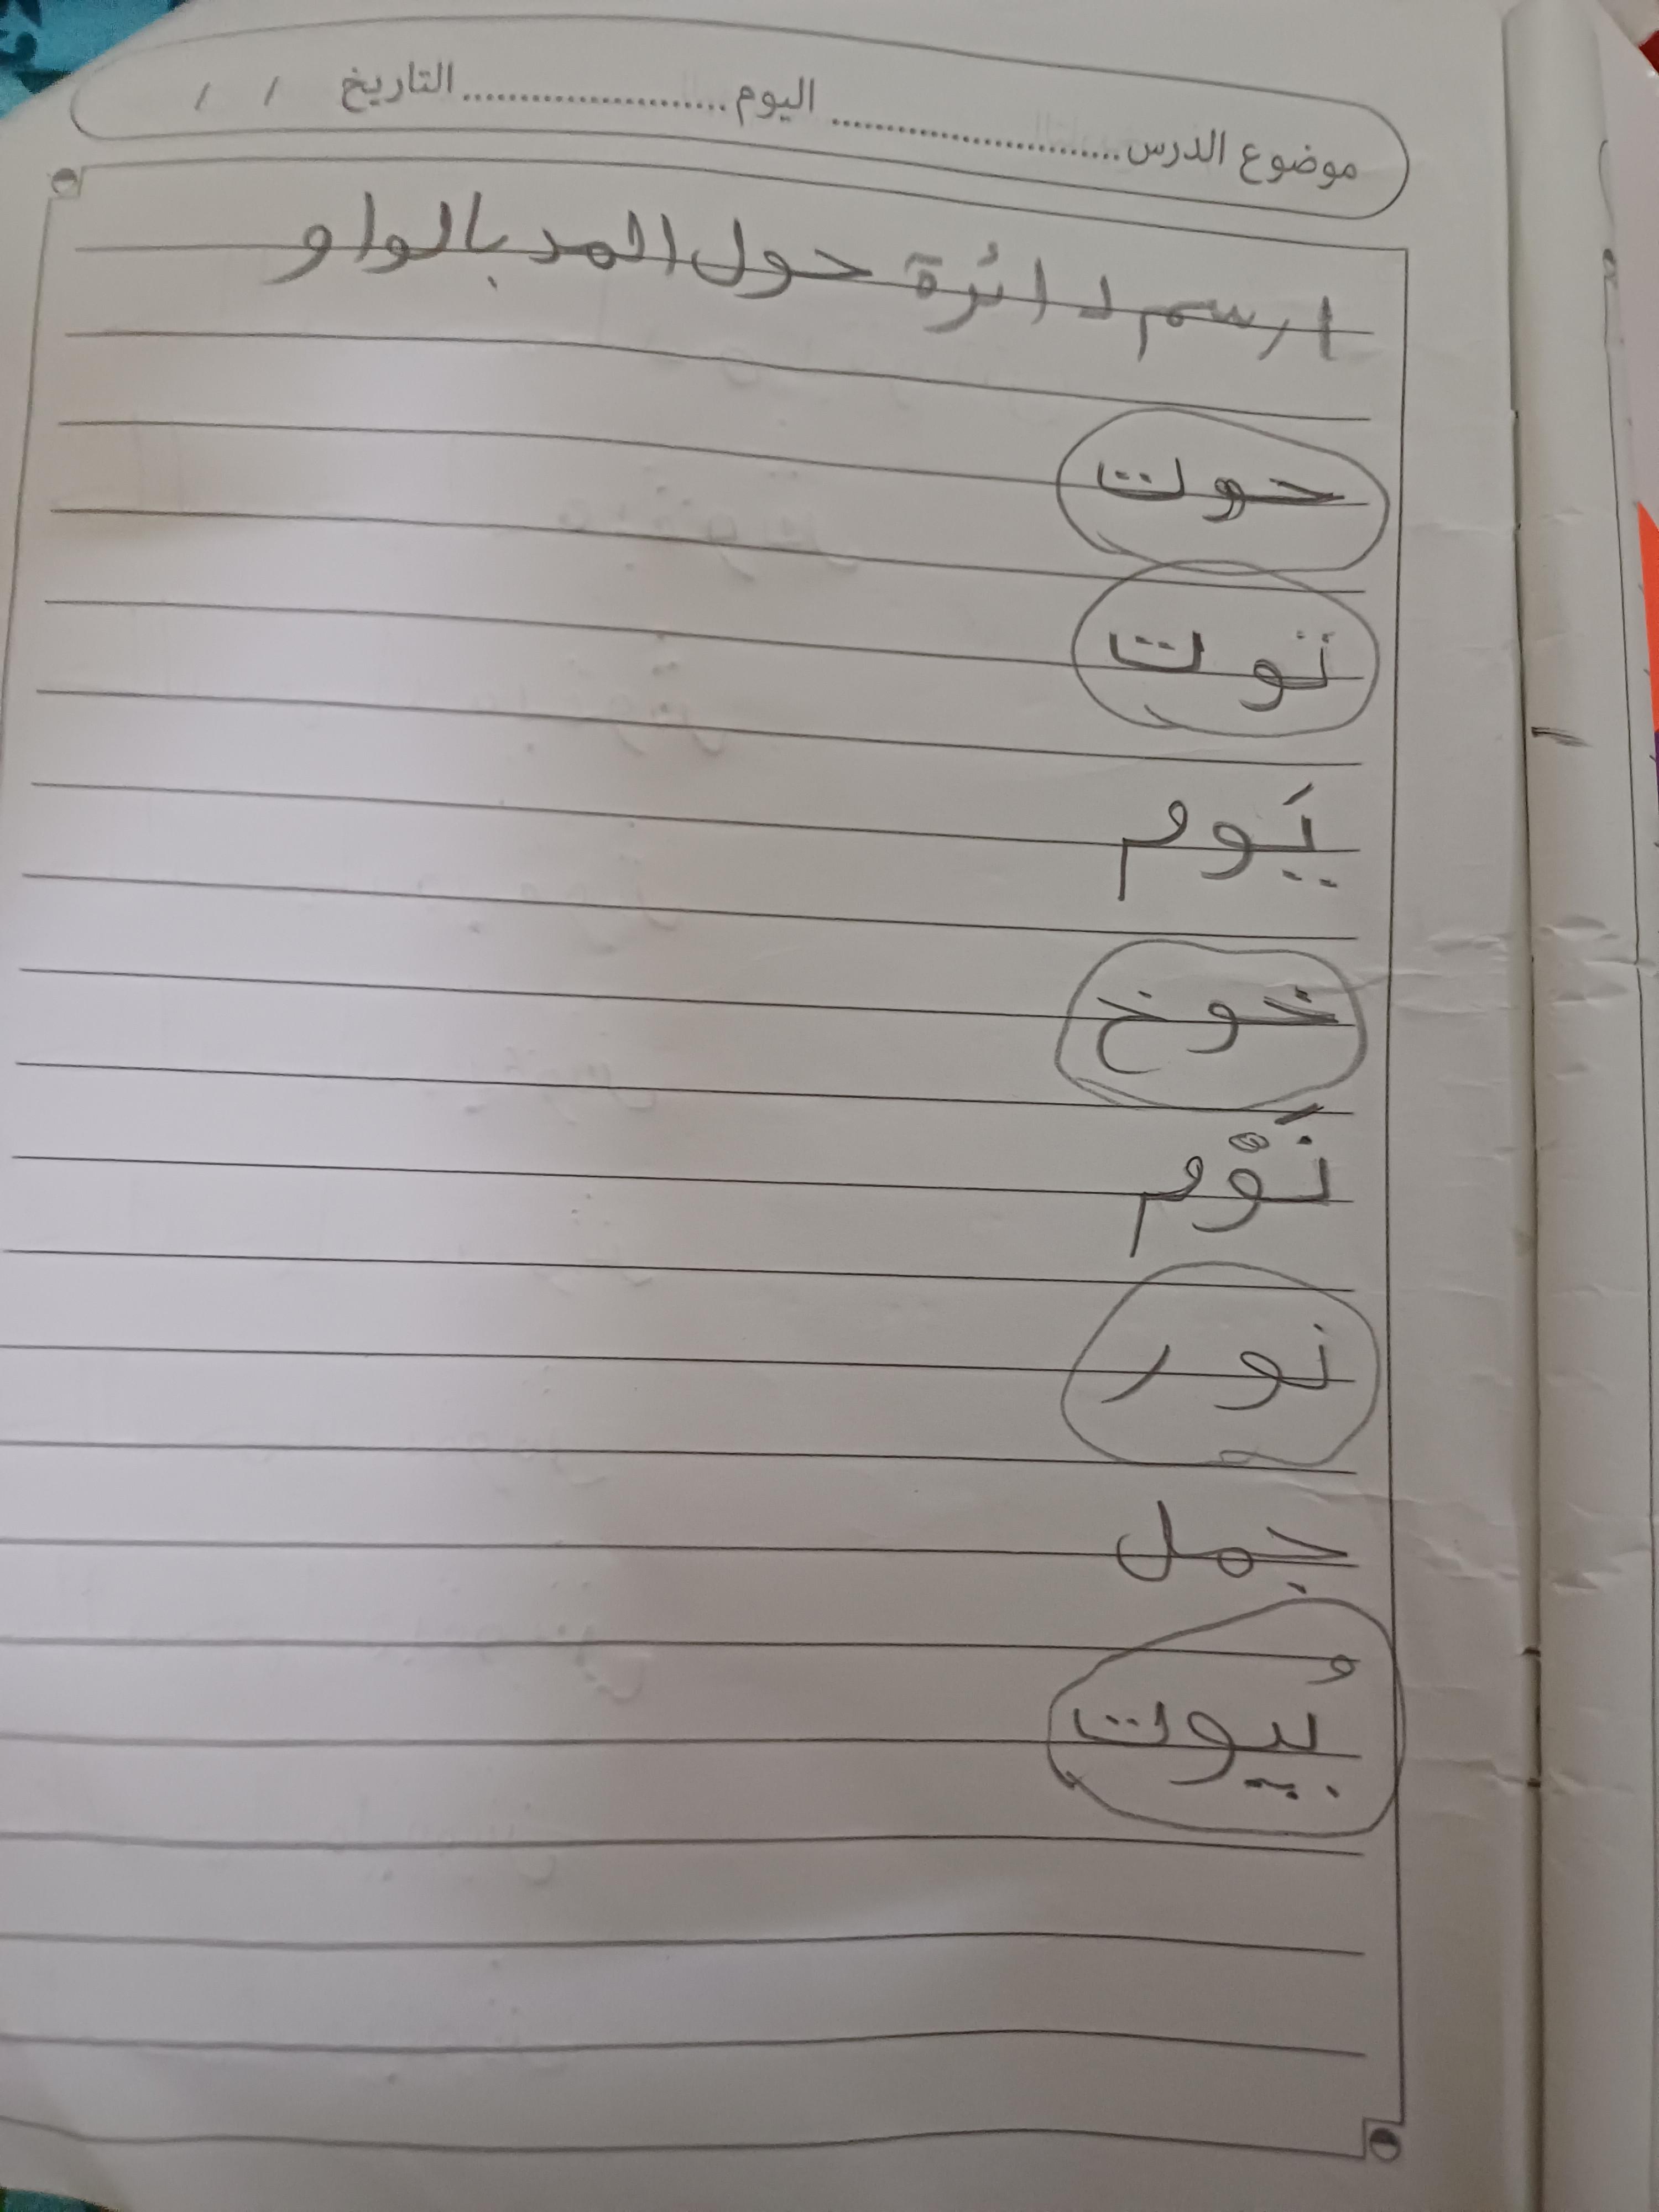 موضوع الدرس .................... اليوم .................... التاريخ / /
ارسم دائرة حول المد بالواو
حوت
توت
يَوم
خوخ
نَوْم
نور
جمل
بُيوت